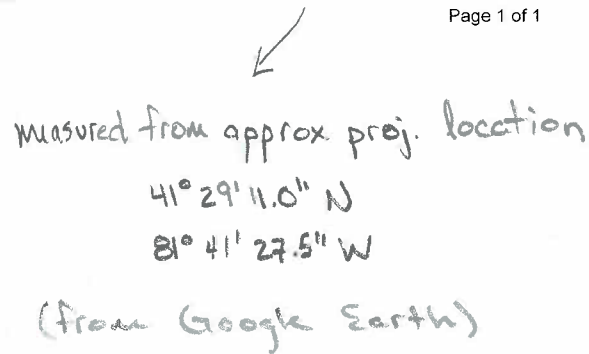 Page 1 of 1
measured from approx proj. location
41° 29' 11.0" N
81° 41' 27.5" W
(from Google Earth)